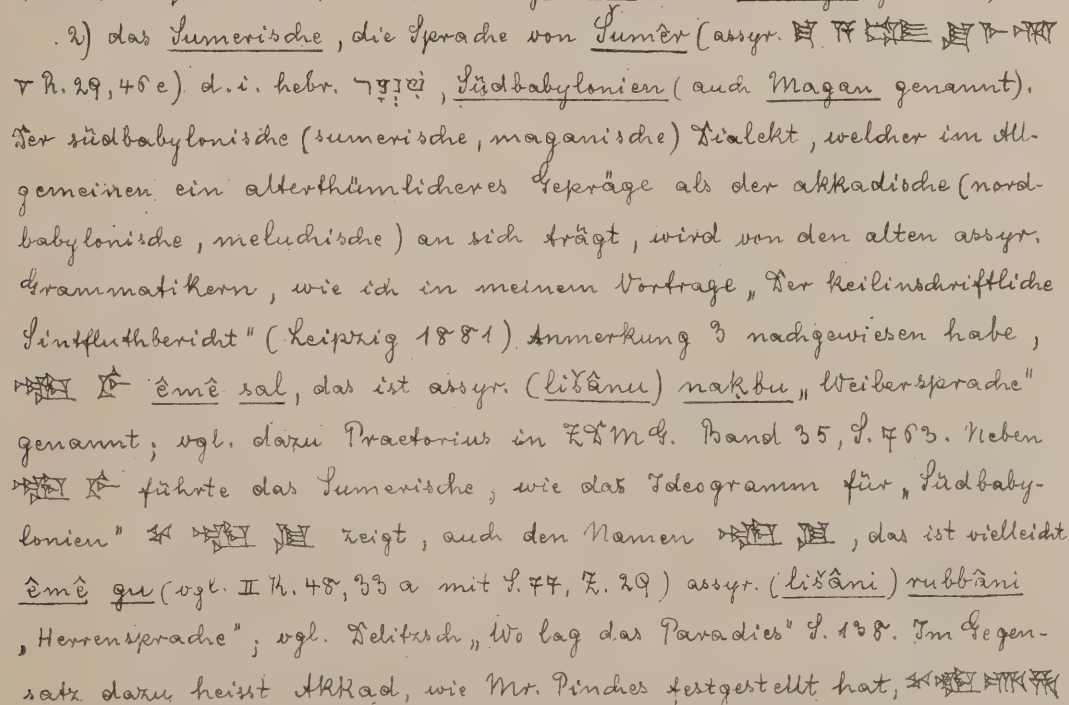 2) das Sumerische, die Sprache von Šumêr (assyr.
V R. 29, 46 e) d. i. hebr. שִׁנְעָר, Südbabylonien (auch Magan genannt).
Der südbabylonische (sumerische, maganische) Dialekt, welcher im All-
gemeinen ein alterthümlicheres Gepräge als der akkadische (nord-
babylonische, meluchische) an sich trägt, wird von den alten assyr.
Grammatikern, wie ich in meinem Vortrage „Der keilinschriftliche
Sintfluthbericht" (Leipzig 1881) Anmerkung 3 nachgewiesen habe,
êmê sal, das ist assyr. (lišânu) nakbu „Weibersprache"
genannt; vgl. dazu Praetorius in ZDMG. Band 35, S. 763. Neben
führte das Sumerische, wie das Ideogramm für „Südbaby-
lonien" zeigt, auch den Namen , das ist vielleicht
êmê gu (vgl. II R. 48, 33 a mit S. 77, Z. 29) assyr. (lišâni) rubbâni
„Herrensprache"; vgl. Delitzsch „Wo lag das Paradies" S. 138. Im Gegen-
satz dazu heisst Akkad, wie Mr. Pinches festgestellt hat,